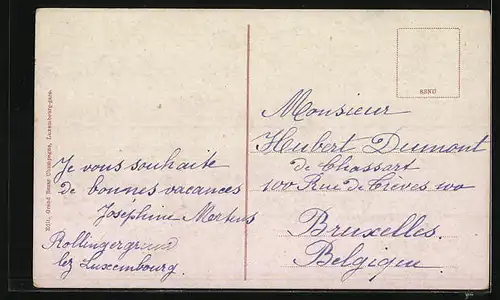 Edit. Grand Bazar Champagne, Luxembourg-gare.
Je vous souhaite
de bonnes vacances
Joséphine Mertens
Rollingergrund
lez Luxembourg.
Monsieur
Hubert Dumont
de Chassart
100 Rue de Trèves 100
Bruxelles.
Belgique.